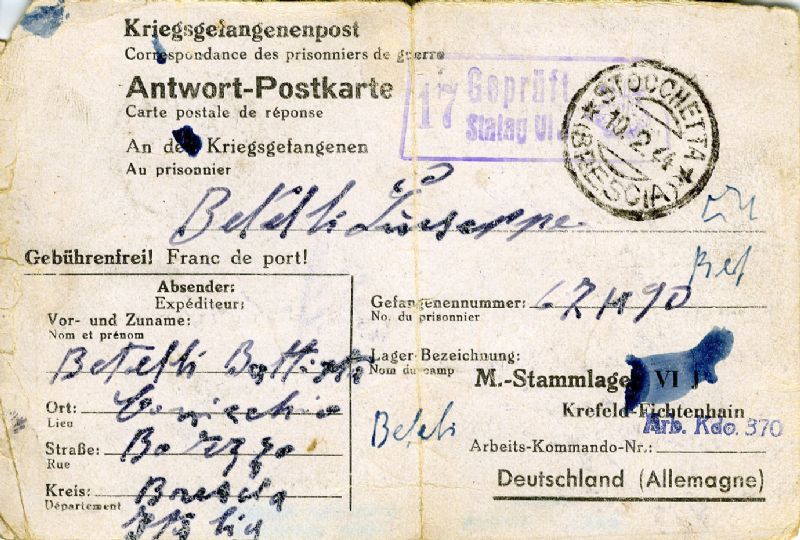 Kriegsgefangenenpost
Correspondance des prisonniers de guerre
Antwort-Postkarte
Carte postale de réponse
17 Geprüft
Stalag VI
STOCCHETTA
10.2.44
(BRESCIA)
An den Kriegsgefangenen
Au prisonnier
Betelli Giuseppe
Gebührenfrei! Franc de port!
Bet
Absender:
Expéditeur:
Vor- und Zuname:
Nom et prénom
Betelli Battista
Ort:
Lieu
Straße: Borzgo
Rue
Kreis: Brescia
Département
Italia
Gefangenennummer:
No. du prisonnier
Lager-Bezeichnung:
Nom du camp
M.-Stammlager VI J
Krefeld-Fichtenhain
Arb. Kdo. 370
Beteli
Arbeits-Kommando-Nr.:
Deutschland (Allemagne)